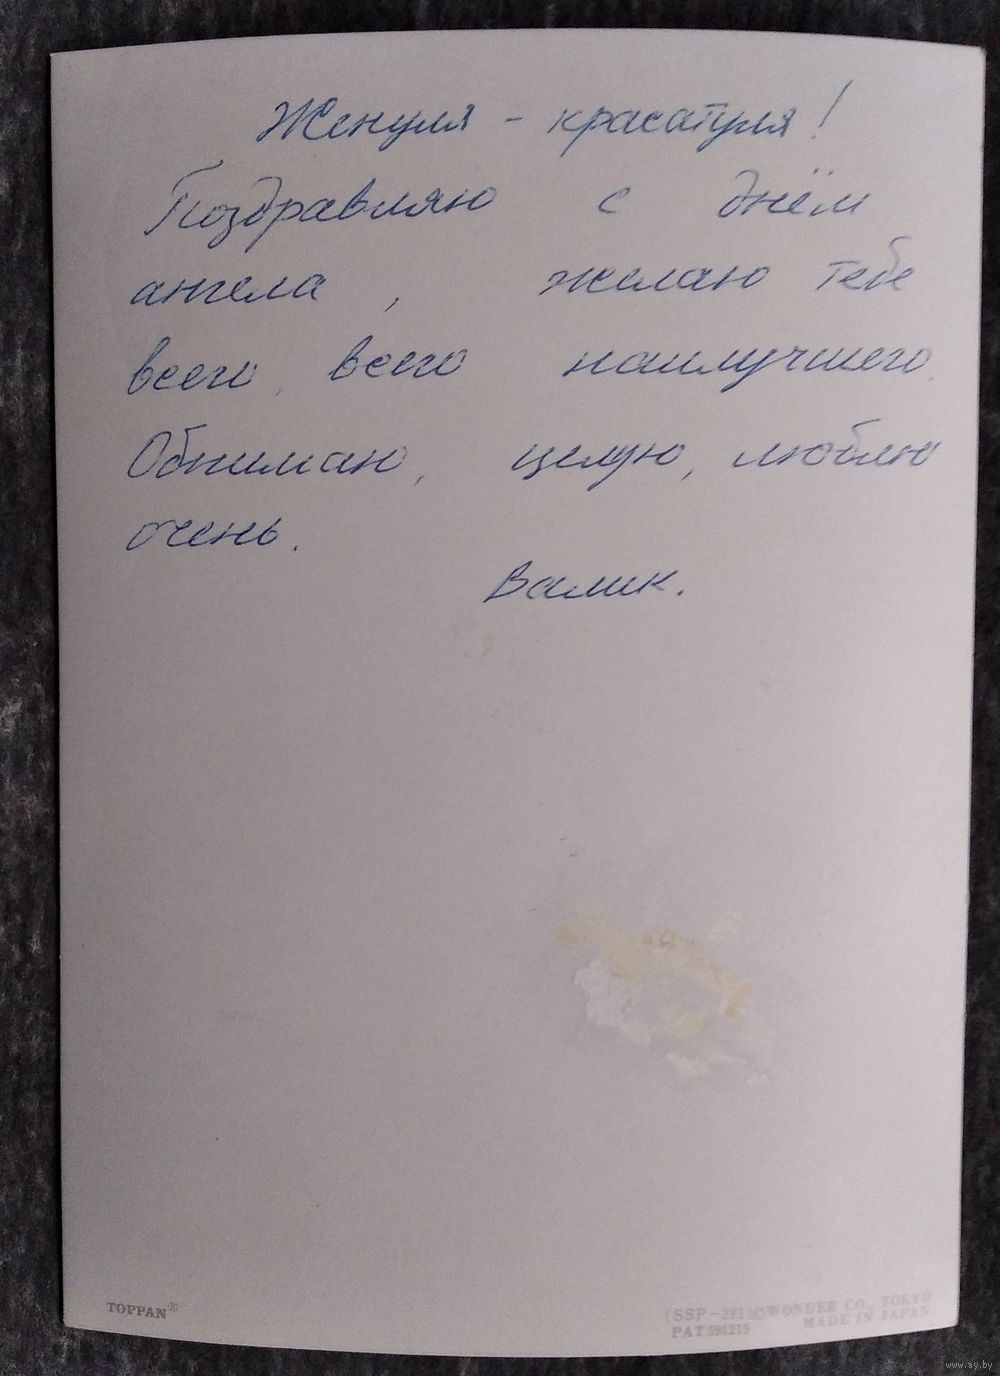 Женуля - красатуля!
Поздравляю с днём
ангела, желаю тебе
всего, всего наилучшего.
Обнимаю, целую, люблю
очень.
Валик.
TOPPAN®
(SSP-281)©WONDER CO., TOKYO
PAT 591219 MADE IN JAPAN
www.ay.by